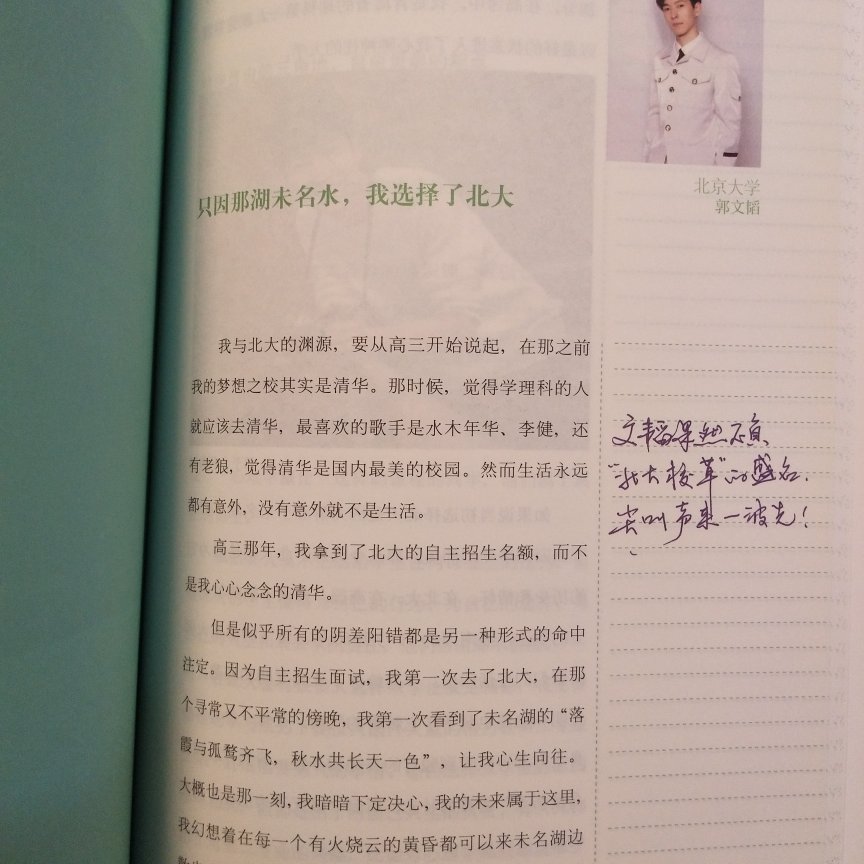 只因那湖未名水，我选择了北大
北京大学
郭文韬
我与北大的渊源，要从高三开始说起，在那之前
我的梦想之校其实是清华。那时候，觉得学理科的人
就应该去清华，最喜欢的歌手是水木年华、李健，还
有老狼，觉得清华是国内最美的校园。然而生活永远
都有意外，没有意外就不是生活。
高三那年，我拿到了北大的自主招生名额，而不
是我心心念念的清华。
但是似乎所有的阴差阳错都是另一种形式的命中
注定。因为自主招生面试，我第一次去了北大，在那
个寻常又不平常的傍晚，我第一次看到了未名湖的“落
霞与孤鹜齐飞，秋水共长天一色”，让我心生向往。
大概也是那一刻，我暗暗下定决心，我的未来属于这里，
我幻想着在每一个有火烧云的黄昏都可以来未名湖边
文韬果然不负
“北大校草”的盛名.
尖叫声来一波先！